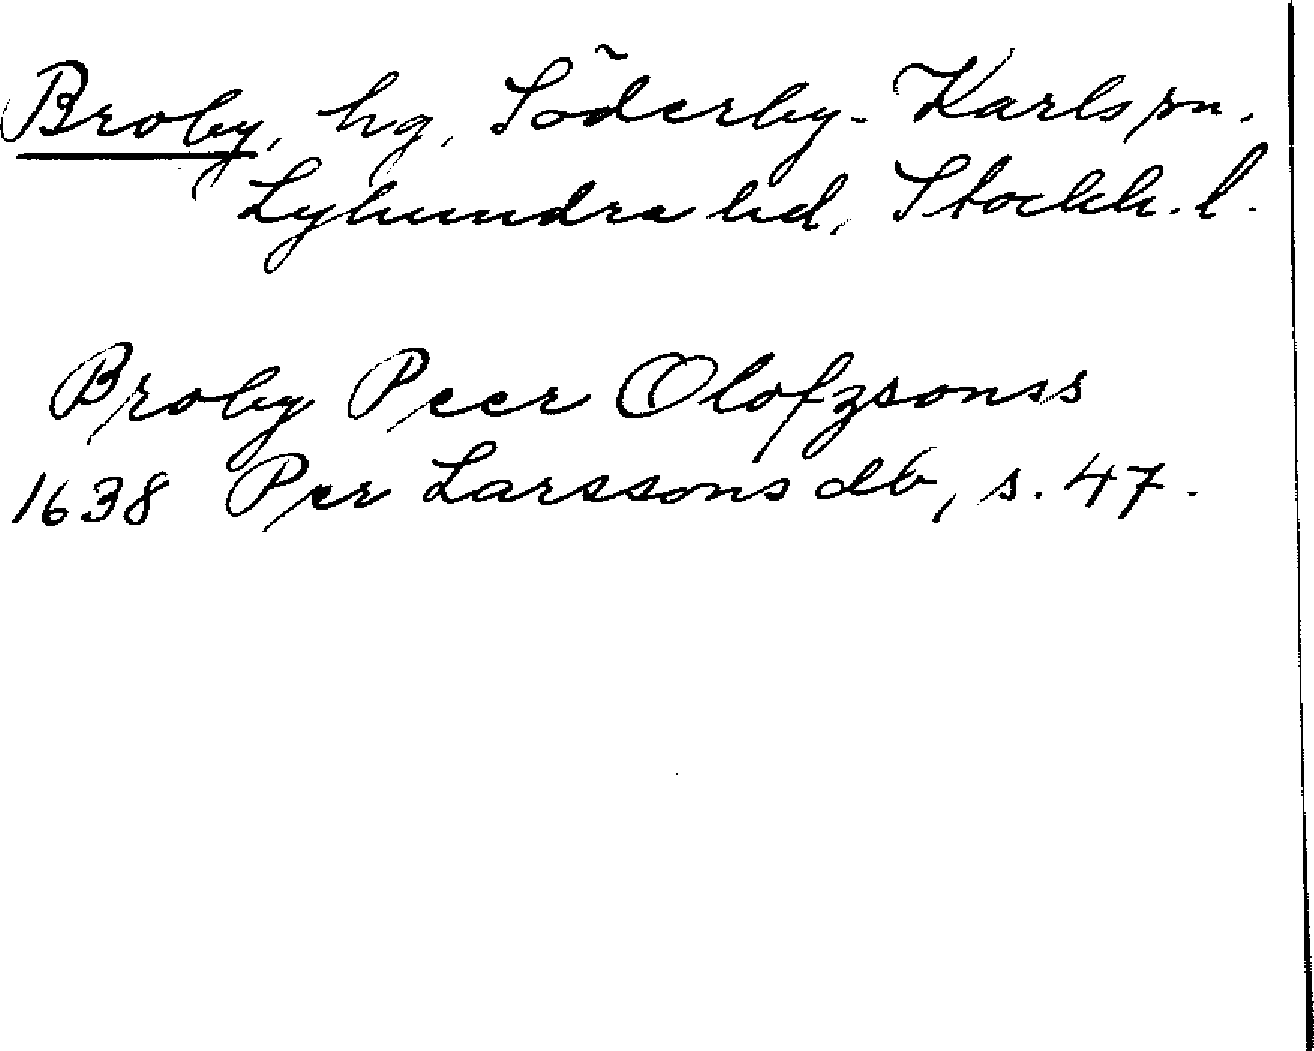 Broby, hg, Söderby-Karls sn.
Lyhundra hd, Stockh. l.
Broby Peer Olofzsonss
1638 Per Larssons db, s. 47.